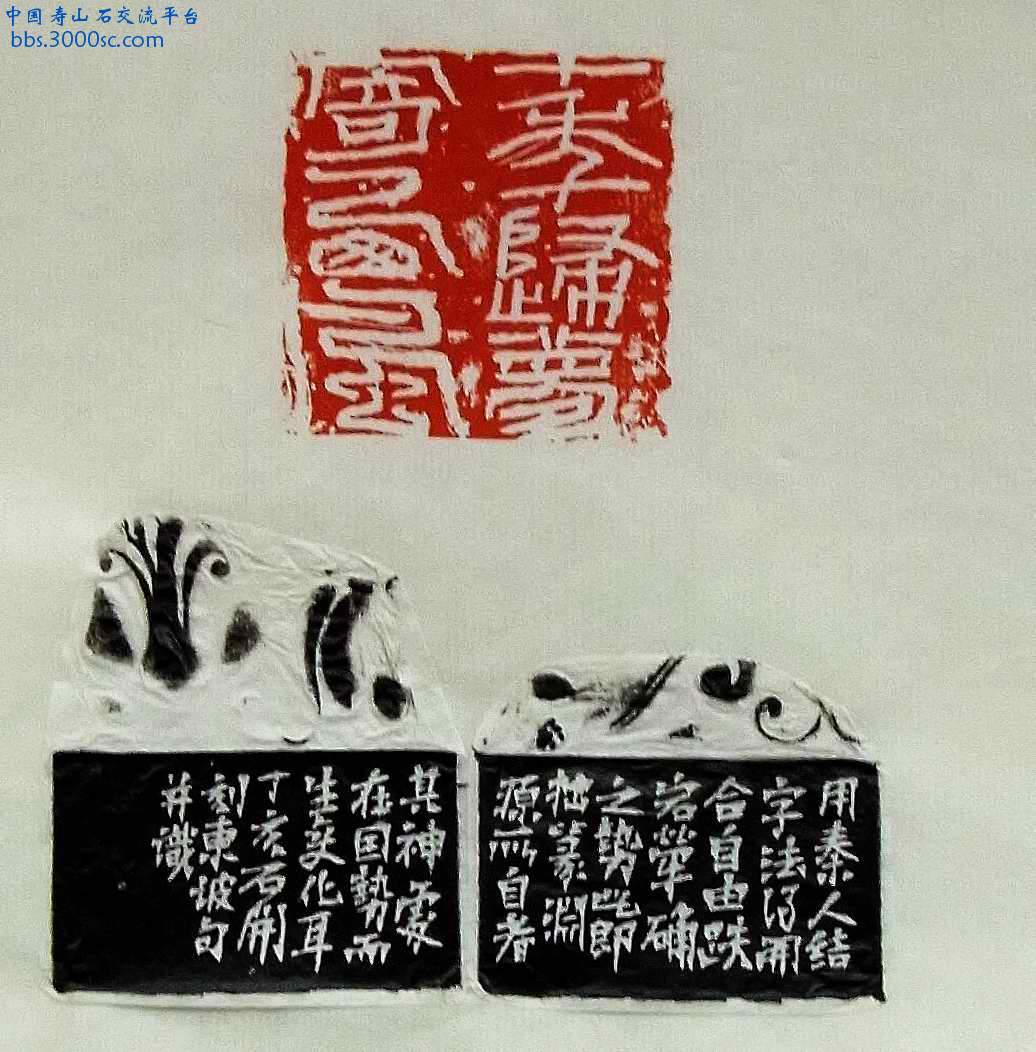 中国寿山石交流平台
bbs.3000sc.com
十年歸夢
寄西風
用秦人结
字法得開
合自由跌
宕犖確
之勢此即
拙篆淵
源所自者
其神處
在因勢而
生变化耳
丁亥石開
刻東坡句
并識